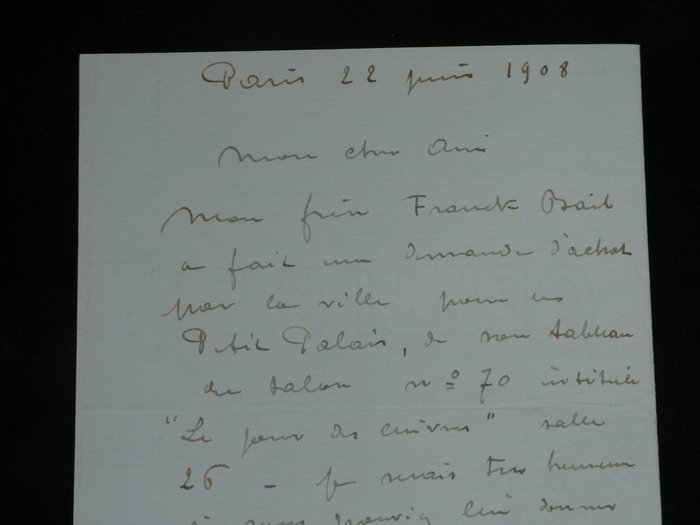 Paris 22 juin 1908
Mon cher Ami
Mon frère Franck Bail
a fait une demande d'achat
par la ville pour le
Petit Palais, de son tableau
du Salon nº 70 intitulé
"Le jour des cuivres" salle
26 - je serais très heureux
si vous pouviez lui donner